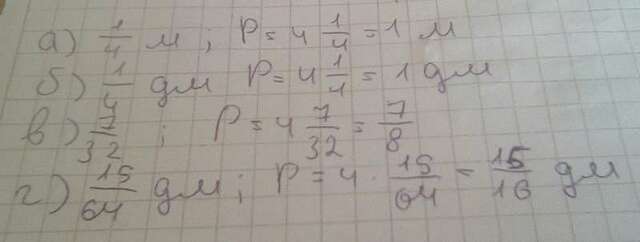 а) 1/4 м ; P = 4 1/4 = 1 м
б) 1/4 дм P = 4 1/4 = 1 дм
в) 7/32 ; P = 4 7/32 = 7/8
г) 15/64 дм ; P = 4 · 15/64 = 15/16 дм